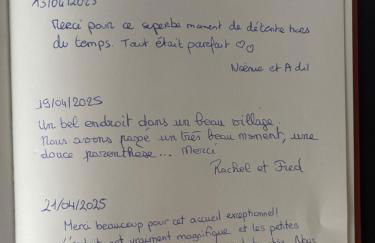 13/04/2025
Merci pour ce superbe moment de détente hors
du temps. Tout était parfait ♡♡
et Adil
19/04/2025
Un bel endroit dans un beau village.
Nous avons passé un très beau moment, une
douce parenthèse... Merci
Rachel et Fred
21/04/2025
Merci beaucoup pour cet accueil exceptionnel!
vraiment magnifique et les petites